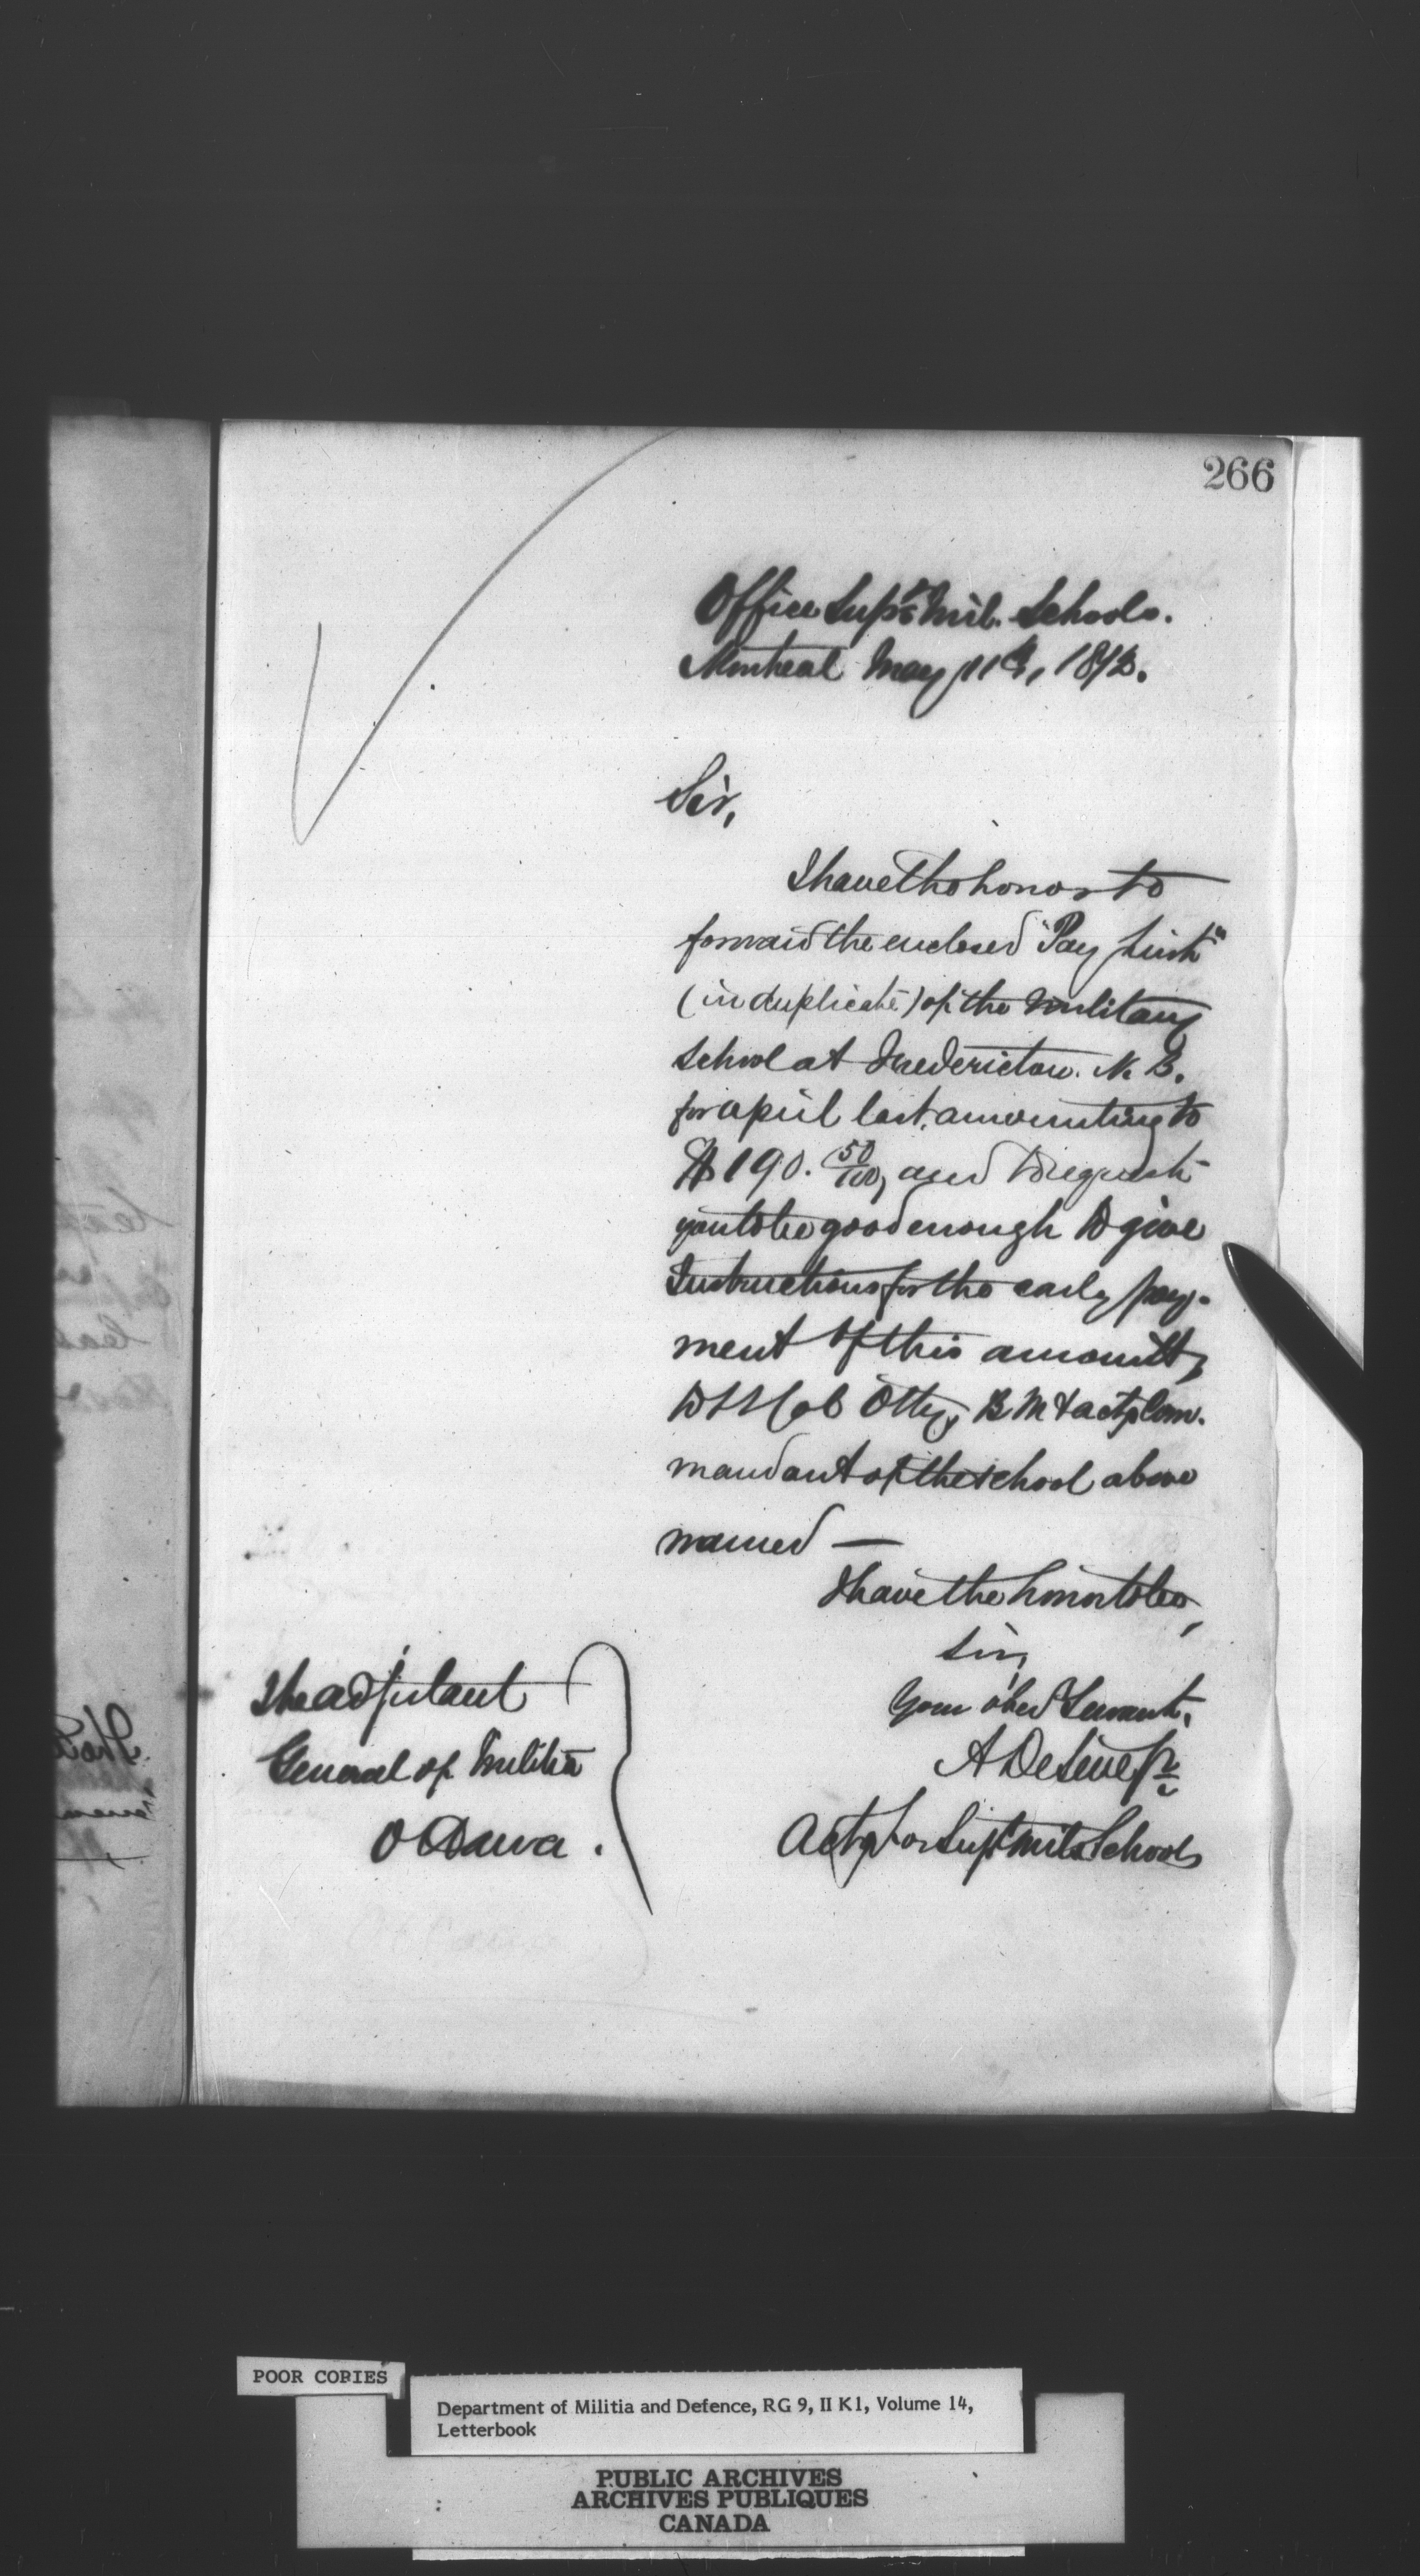 266
Office Supt Mil. Schools.
Montreal May 11th, 1872.
Sir,
I have the honor to
forward the enclosed "Pay List"
(in duplicate) of the Military
School at Fredericton. N. B.
for April last, amounting to
$190. 50/100, and to request
you to be good enough to give
Instructions for the early pay-
ment of this amount,
to Lt Col Otty, B M & actg Com-
mandant of the School above
named —
I have the honor to be,
Sir,
Your obed Servant,
A DeLine Jr
Actg for Supt Mil. Schools
The Adjutant
General of Militia
Ottawa.
POOR COPIES
Department of Militia and Defence, RG 9, II K1, Volume 14,
Letterbook
PUBLIC ARCHIVES
ARCHIVES PUBLIQUES
CANADA